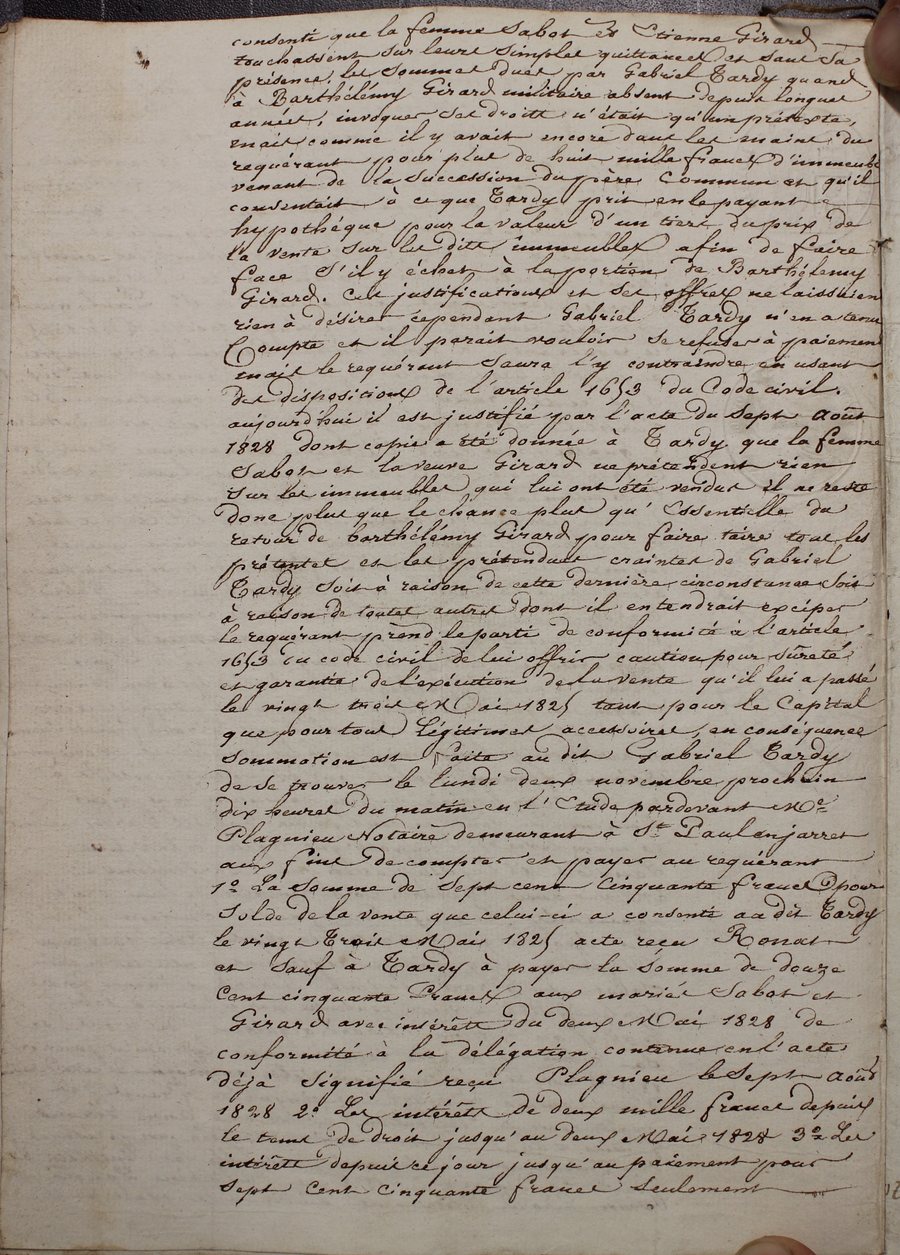 consenti que la femme Sabot et Etienne Girard
touchassent sur leurs simples quittances et sans sa
présence, les sommes dues par Gabriel Tardy quand
à Barthélémy Girard militaire absent depuis longues
années, invoquer ses droits n'était qu'un prétexte,
mais comme il y avait encore dans les mains du
requérant pour plus de huit mille francs d'immeuble
venant de la succession du père commun et qu'il
consentait à ce que Tardy prit en le payant
hypothéque pour la valeur d'un tiers du prix de
la vente sur les dits immeubles afin de faire
face s'il y échet à la portion de Barthélemy
Girard. Ces justifications et ses offres ne laissaient
rien à désirer cependant Gabriel Tardy n'en a tenu
Compte et il parait vouloir se refuser à paiement
mais le requérant saura l'y contraindre en usant
des dispositions de l'article 1653 du Code civil.
aujourdhui il est justifié par l'acte du sept Août
1828 dont copie a été donnée à Tardy que la femme
Sabot et la veuve Girard ne prétendent rien
sur les immeubles qui lui ont été vendus il ne reste
donc plus que le chance plus qu' Essentielle du
retour de barthélémy Girard pour faire taire tous les
prétextes et les prétendues craintes de Gabriel
Tardy soit à raison de cette dernière circonstance soit
à raison de toutes autres dont il entendrait exciper
le requérant prend le parti de conformité à l'article
1653 du code civil de lui offrir caution pour sûreté
et garantie de l'exécution de la vente qu'il lui a passé
le vingt trois Mai 1825 tant pour le Capital
que pour tous légitimes accessoires, en conséquence
sommation est faite au dit Gabriel Tardy
de se trouver le lundi deux novembre prochain
dix heures du matin en l'Etude pardevant Me
Plagnieu Notaire demeurant à St Paul en jarret
aux fins de compter et payer au requérant
1º La somme de sept cent cinquante francs pour
solde de la vente que celui-ci a consenti au dit Tardy
le vingt Trois Mai 1825 acte reçu Ronat
et sauf à Tardy à payer la somme de douze
cent cinquante francs aux mariés Sabot et
Girard avec intérêts du deux Mai 1828 de
conformité à la délégation contenue en l'acte
déjà signifié reçu Plagnieu le sept Août
1828 2º Les intérêts de deux mille francs depuis
le tems de droit jusqu'au deux Mai 1828 3º Les
intérêts depuis ce jour jusqu'au paiement pour
sept cent cinquante francs seulement